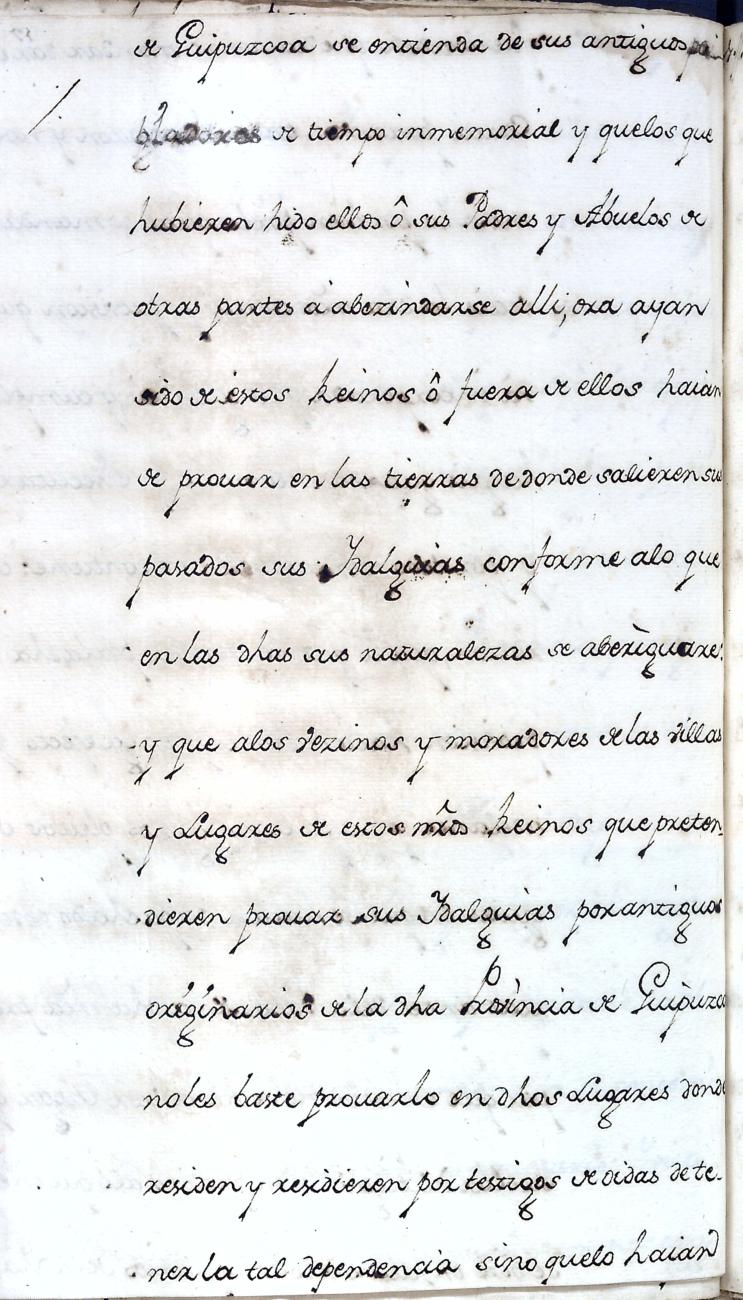 de Guipuzcoa se entienda de sus antiguos po
bladores de tiempo inmemorial y quelos que
hubieren hido ellos ô sus Padres y Abuelos de
otras partes á abezindarse alli, ora ayan
sido de éstos Reinos ô fuera de ellos haian
de prouar en las tierras de donde salieren sus
pasados sus Idalguias conforme alo que
en las dhas sus naturalezas se aberiguare:
y que alos vezinos y moradores de las villas
y Lugares de estos nros Reinos que preten-
dieren prouar sus Idalguias por antiguos
originarios de la dha Provincia de Guipuzcoa
no les baste prouarlo en dhos Lugares donde
residen y residieren por testigos de oidas de te-
ner la tal dependencia sino quelo haian